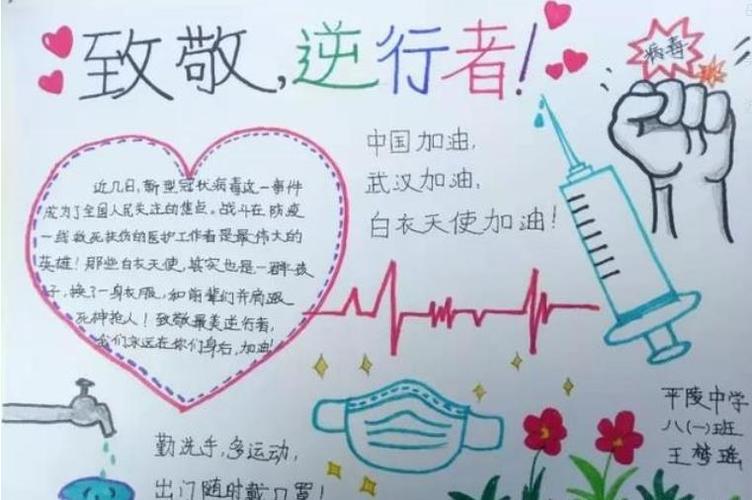 致敬,逆行者!
病毒
中国加油,
武汉加油,
白衣天使加油!
近几日,新型冠状病毒这一事件
成为了全国人民关注的焦点。战斗在防疫
一线救死扶伤的医护工作者是最伟大的
英雄!那些白衣天使,其实也是一群孩
子,换了一身衣服,如前辈们并肩跟
死神抢人!致敬最美逆行者,
我们永远在你们身后,加油!
平陵中学
八(一)班
王梦瑶
勤洗手,多运动,
出门随时戴口罩!